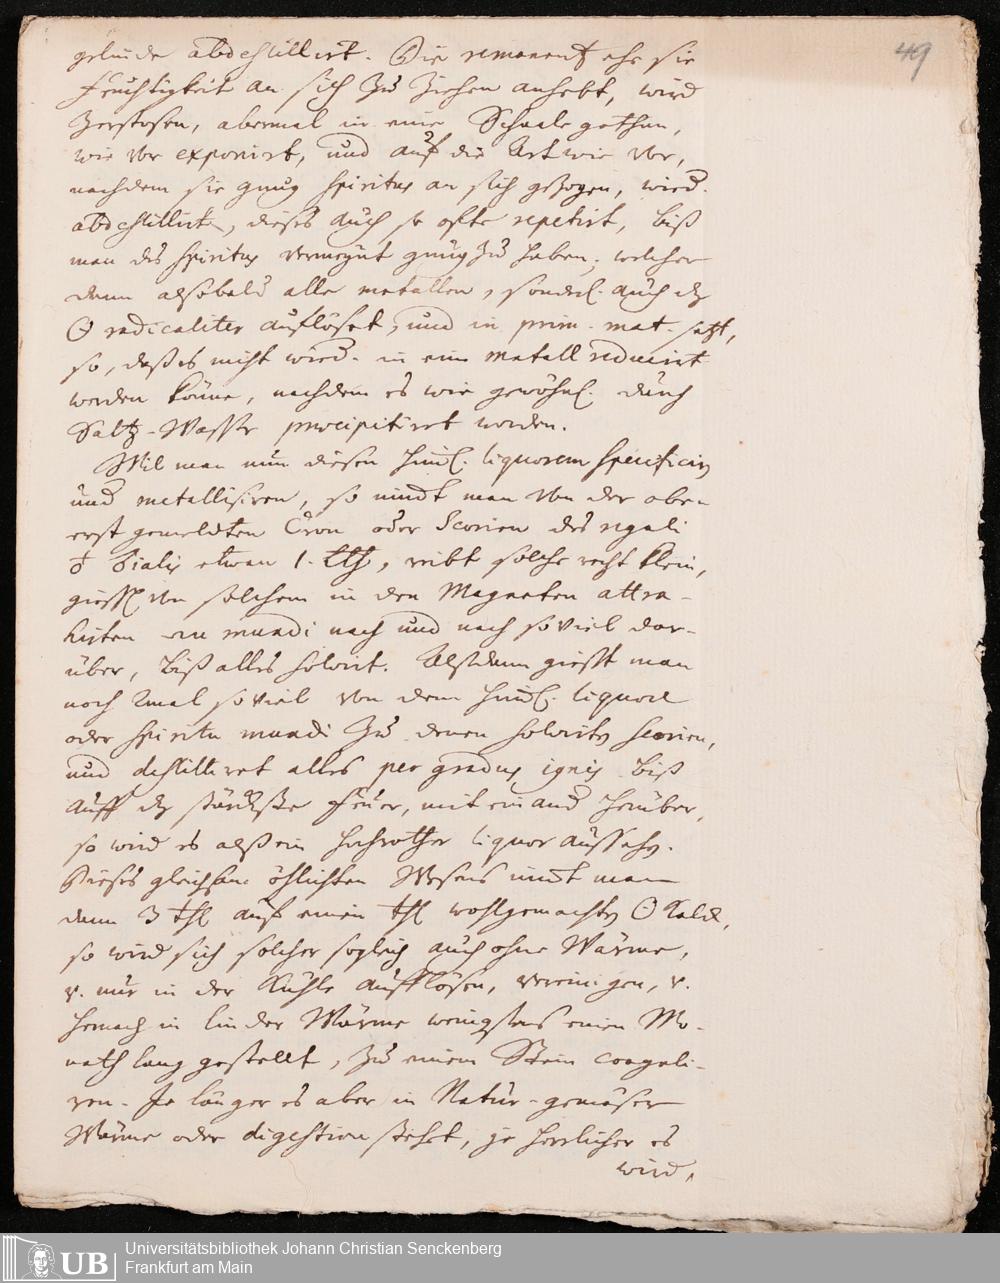 49
gelinde abdestillirt. Die remanenz ehe sie
Feuchtigkeit an sich zu ziehen anhebt, wird
zerstosen, abermal in eine Schaale gethan,
wie vor exponirt, und auf die Art wie vor,
nachdem sie gnug spiritus an sich gezogen, wied.
abdestillirt, dieses auch so offt repetirt, biß
man des spiritus vermeynt gnug zu haben; welcher
dann alsobald alle metallen, sonderl. auch dz
☉ radicaliter auflöset, und in prim. mat. setzt,
so, daß es nicht wied. in ein metall reducirt
werden könne, nachdem es wie gewöhnl. durch
Saltz-Wasser praecipitiret worden.
Wil man nun diesen himl. liquorem specificirn
und metallisiren, so nimt man von der oben
erst gemeldten Croco oder Scorien des reguli
♂ etwan 1. Lth, reibt solche recht klein,
giesst von solchem in den Magneten attra-
hirten mundi nach und nach so viel dar-
über, biß alles solvirt. Alsdann giesst man
noch 2mal so viel von dem himl. liquore
oder spiritu mundi zu denen solvirten scorien,
und destilliret alles per gradus ignis biß
auff dz stärckste Feuer, mit einand herüber,
so wird es alß ein hochrother liquor aussehn.
Dieses gleichsam öhlichten Wesens nimt man
dann 3 thl auf einen thl wohlgemachten ☉ Kalck,
so wird sich solcher sogleich auch ohne Wärme,
v. nur in der Kühle aufflösen, vereinigen, v.
hernach in linder Wärme wenigstens einen Mo-
nath lang gestellt, zu einem Stein coaguli-
ren. Je länger es aber in Natur-gemäser
Wärme oder digestion stehet, je herrlicher es
wird,
UB
Universitätsbibliothek Johann Christian Senckenberg
Frankfurt am Main